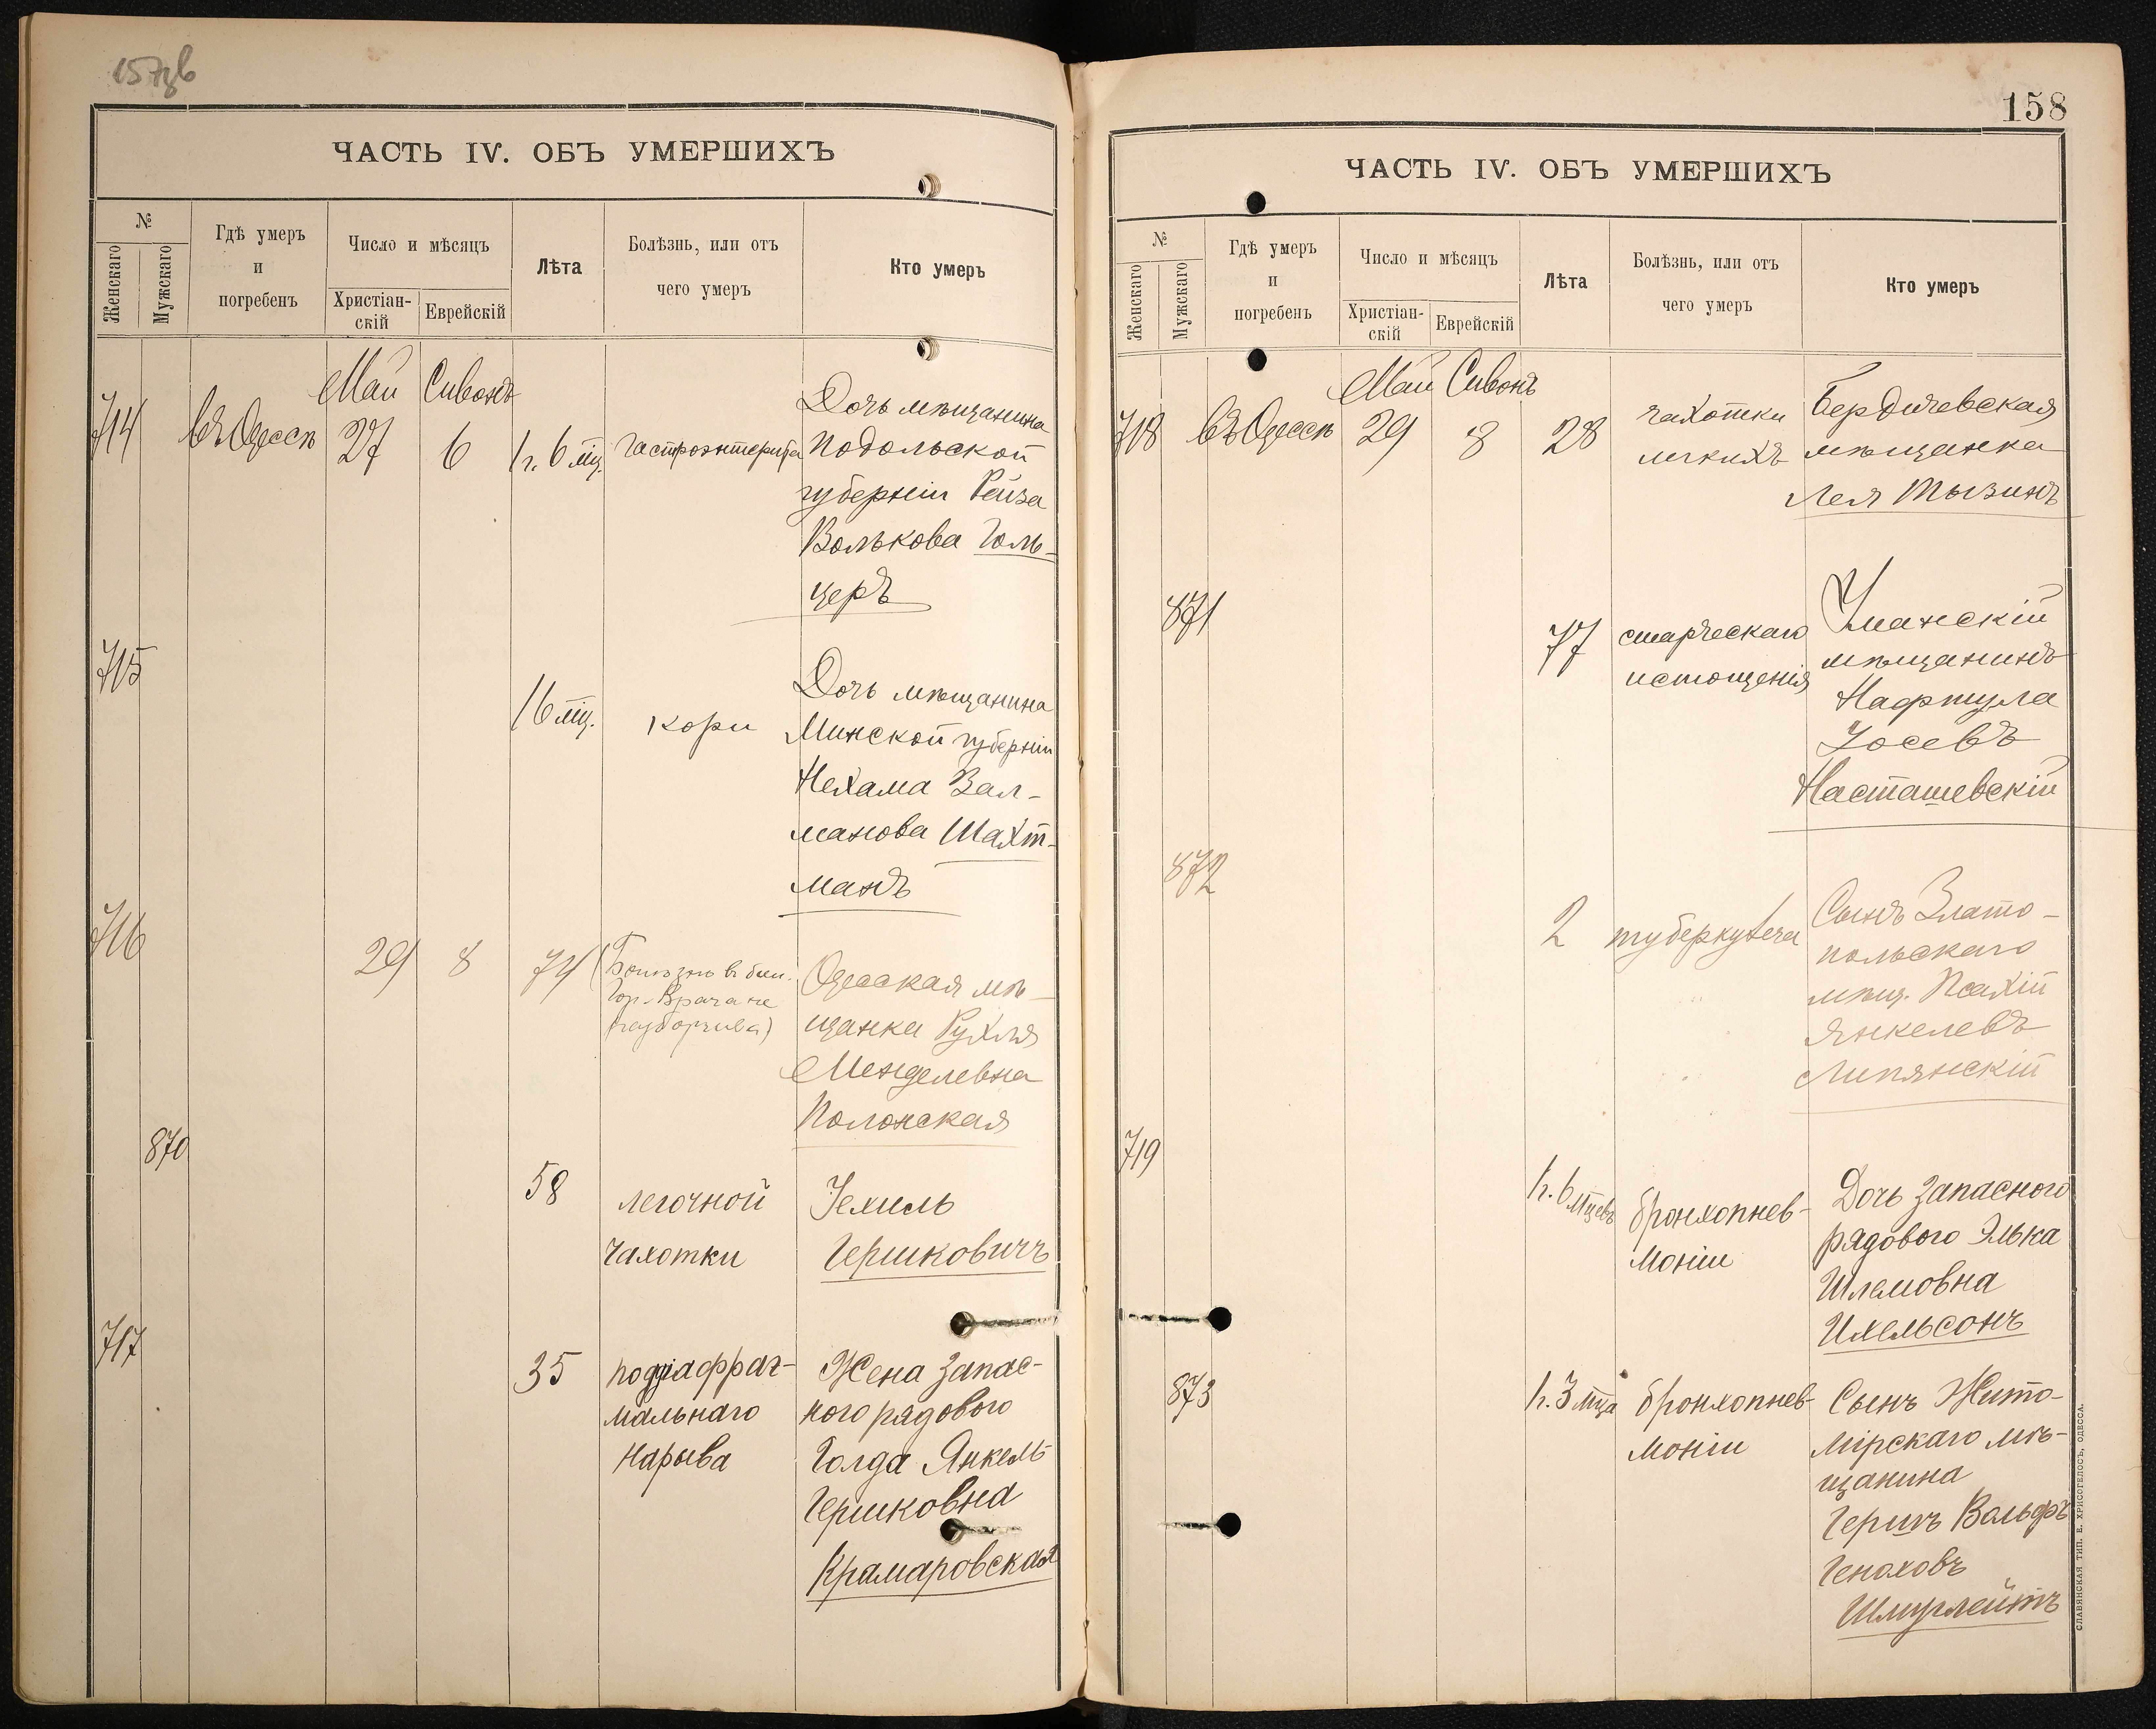 157об
ЧАСТЬ IV. ОБЪ УМЕРШИХЪ
№
Женскаго
Мужскаго
Гдѣ умеръ
и
погребенъ
Число и мѣсяцъ
Христіан-
скій
Еврейскій
Лѣта
Болѣзнь, или отъ
чего умеръ
Кто умеръ
Май Сивонъ
714 въ Одессѣ 27 6 1г. 6 мц. Гастроэнтерита
Дочь мѣщанина
Подольской
губерніи Рейза
Волькова Голь-
церъ
715
16 мц. кори
Дочь мѣщанина
Минской губерніи
Нехама Зал-
манова Шахт-
манъ
716
29 8 74
(Болѣзнь в бил.
Гор. Врача не
разборчива)
Одесская мѣ-
щанка Рухля
Менделевна
Полонская
870
58 легочной
чахотки
Іехиль
Гершковичъ
717
35 поддіафраг-
мальнаго
нарыва
Жена запас-
ного рядового
Голда Янкель
Гершковна
Крамаровская
158
ЧАСТЬ IV. ОБЪ УМЕРШИХЪ
№
Женскаго
Мужскаго
Гдѣ умеръ
и
погребенъ
Число и мѣсяцъ
Христіан-
скій
Еврейскій
Лѣта
Болѣзнь, или отъ
чего умеръ
Кто умеръ
Май Сивонъ
718 въ Одессѣ 29 8 28
чахотки
легкихъ
Бердичевская
мѣщанка
Лея Тызинъ
871
77 старческаго
истощенія
Уманскій
мѣщанинъ
Нафтула
Іосевъ
Насташевскій
872
2 туберкулеза
Сынъ Злато-
польскаго
мѣщ. Псахій
Янкелевъ
Липянскій
719
1г. 6 мцевъ бронхопнев-
моніи
Дочь запасного
рядового Элька
Шлемовна
Ихельсонъ
873
1г. 3 мца бронхопнев-
моніи
Сынъ Жито-
мірскаго мѣ-
щанина
Гершъ Вольфъ
Геноховъ
Шмуглейтъ
СЛАВЯНСКАЯ ТИП. Е. ХРИСОГЕЛОСЪ, ОДЕССА.